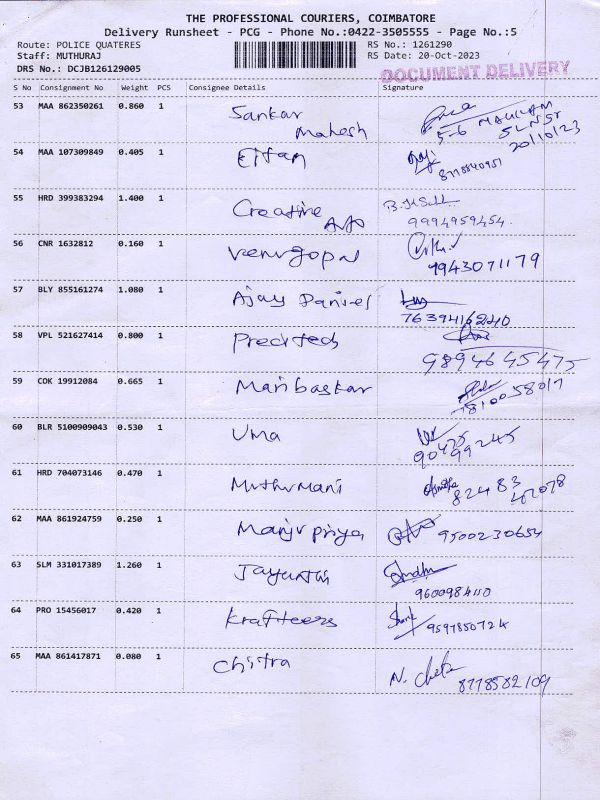 THE PROFESSIONAL COURIERS, COIMBATORE
Delivery Runsheet - PCG - Phone No.:0422-3505555 - Page No.:5
Route: POLICE QUATERES RS No.: 1261290
Staff: MUTHURAJ RS Date: 20-Oct-2023
DRS No.: DCJB126129005 DOCUMENT DELIVERY
S No Consignment No Weight PCS Consignee Details Signature
53 MAA 862350261 0.860 1 Sankar
Mahesh
20/10/23
54 MAA 107309849 0.405 1
55 HRD 399383294 1.400 1 Creative
9994959454
56 CNR 1632812 0.160 1 Venugopal
9943071179
57 BLY 855161274 1.080 1 Ajay Daniel
58 VPL 521627414 0.800 1
9894645475
59 COK 19912084 0.665 1 Maribaskar
60 BLR 5100909043 0.530 1 Uma
90425
99245
61 HRD 704073146 0.470 1 Muthumani
82483
62 MAA 861924759 0.250 1 Manju priya 9500230654
63 SLM 331017389 1.260 1
9600984110
64 PRO 15456017 0.420 1 9597850724
65 MAA 861417871 0.080 1 Chitra
8778582109